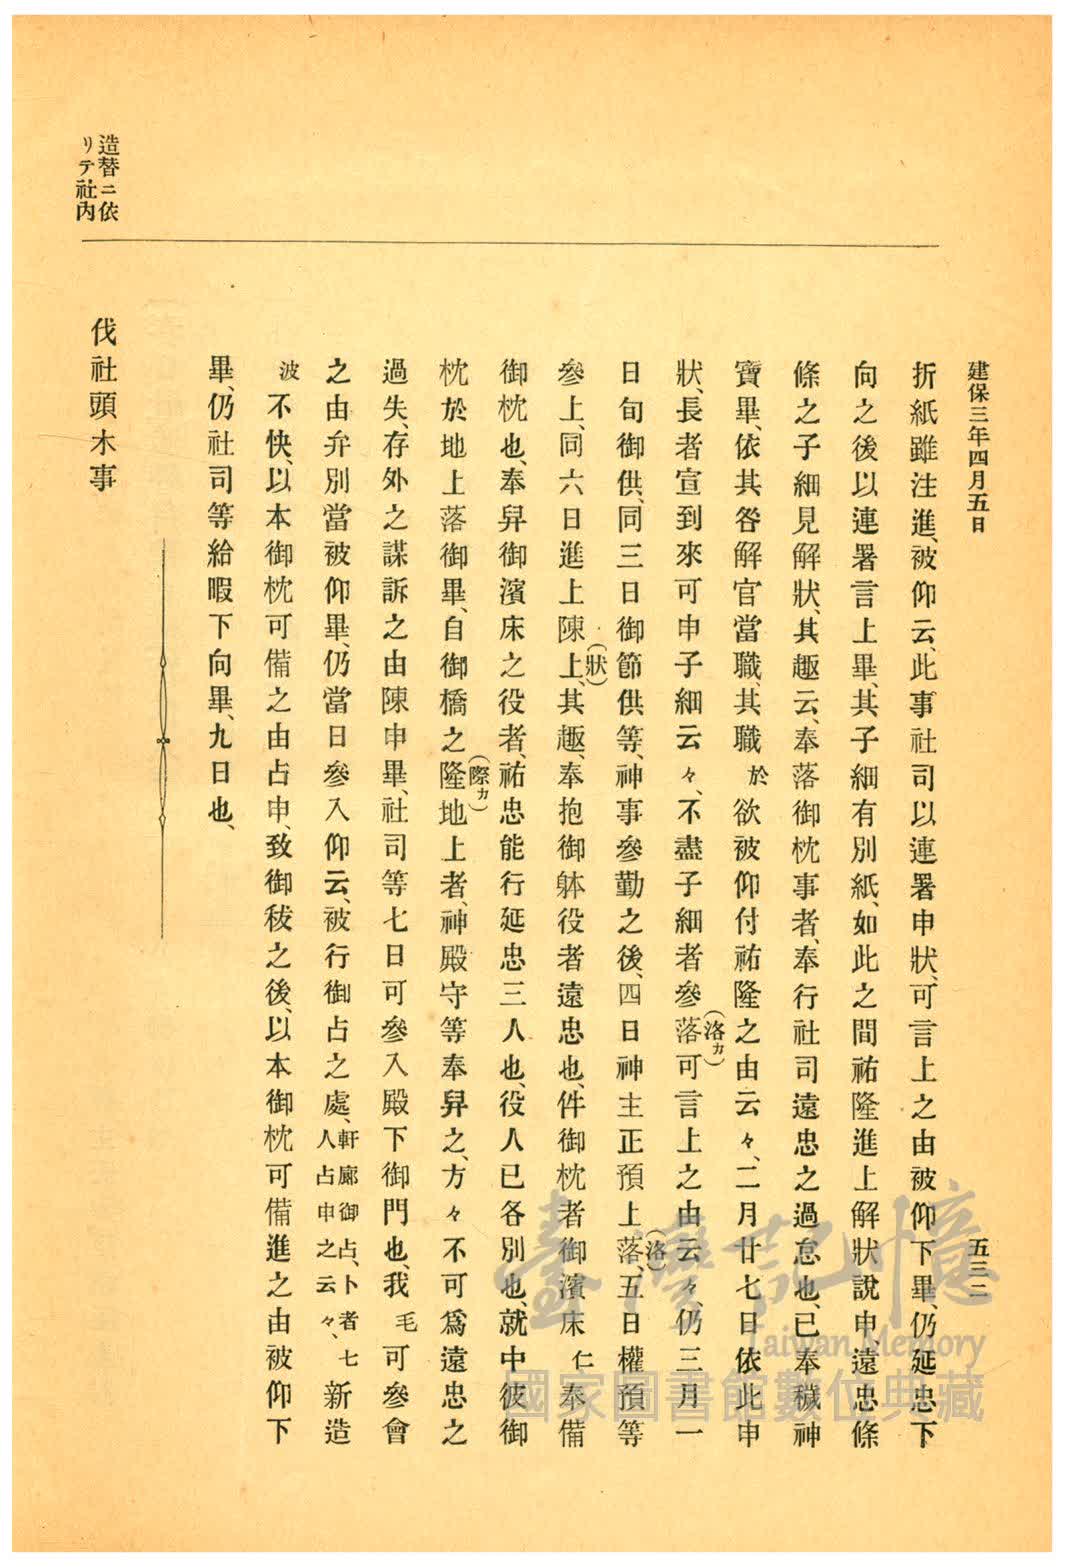 建保三年四月五日
五三二
折紙雖注進、被仰云、此事社司以連署申狀、可言上之由被仰下畢、仍延忠下
向之後以連署言上畢、其子細有別紙、如此之間祐隆進上解狀說申、遠忠條
條之子細見解狀、其趣云、奉落御枕事者、奉行社司遠忠之過怠也、已奉穢神
寶畢、依其咎解官當職、其職於欲被仰付祐隆之由云々、二月廿七日依此申
狀、長者宣到來可申子細云々、不盡子細者參落(洛カ)可言上之由云々、仍三月一
日旬御供、同三日御節供等、神事參勤之後、四日神主正預上落(洛)、五日權預等
參上、同六日進上陳上(狀)、其趣、奉抱御躰役者遠忠也、件御枕者御濱床仁奉備
御枕也、奉舁御濱床之役者、祐忠能行延忠三人也、役人已各別也、就中彼御
枕於地上落御畢、自御橋之隆(際カ)地上者、神殿守等奉舁之、方々不可爲遠忠之
過失、存外之謀訴之由陳申畢、社司等七日可參入殿下御門也、我毛可參會
之由弁別當被仰畢、仍當日參入仰云、被行御占之處、軒廊御占、卜者七人占申之云々、新造
波不快、以本御枕可備之由占申、致御秡之後、以本御枕可備進之由被仰下
畢、仍社司等給暇下向畢、九日也、
造替ニ依
リテ社內
伐社頭木事
臺灣記憶
Taiwan Memory
國家圖書館數位典藏